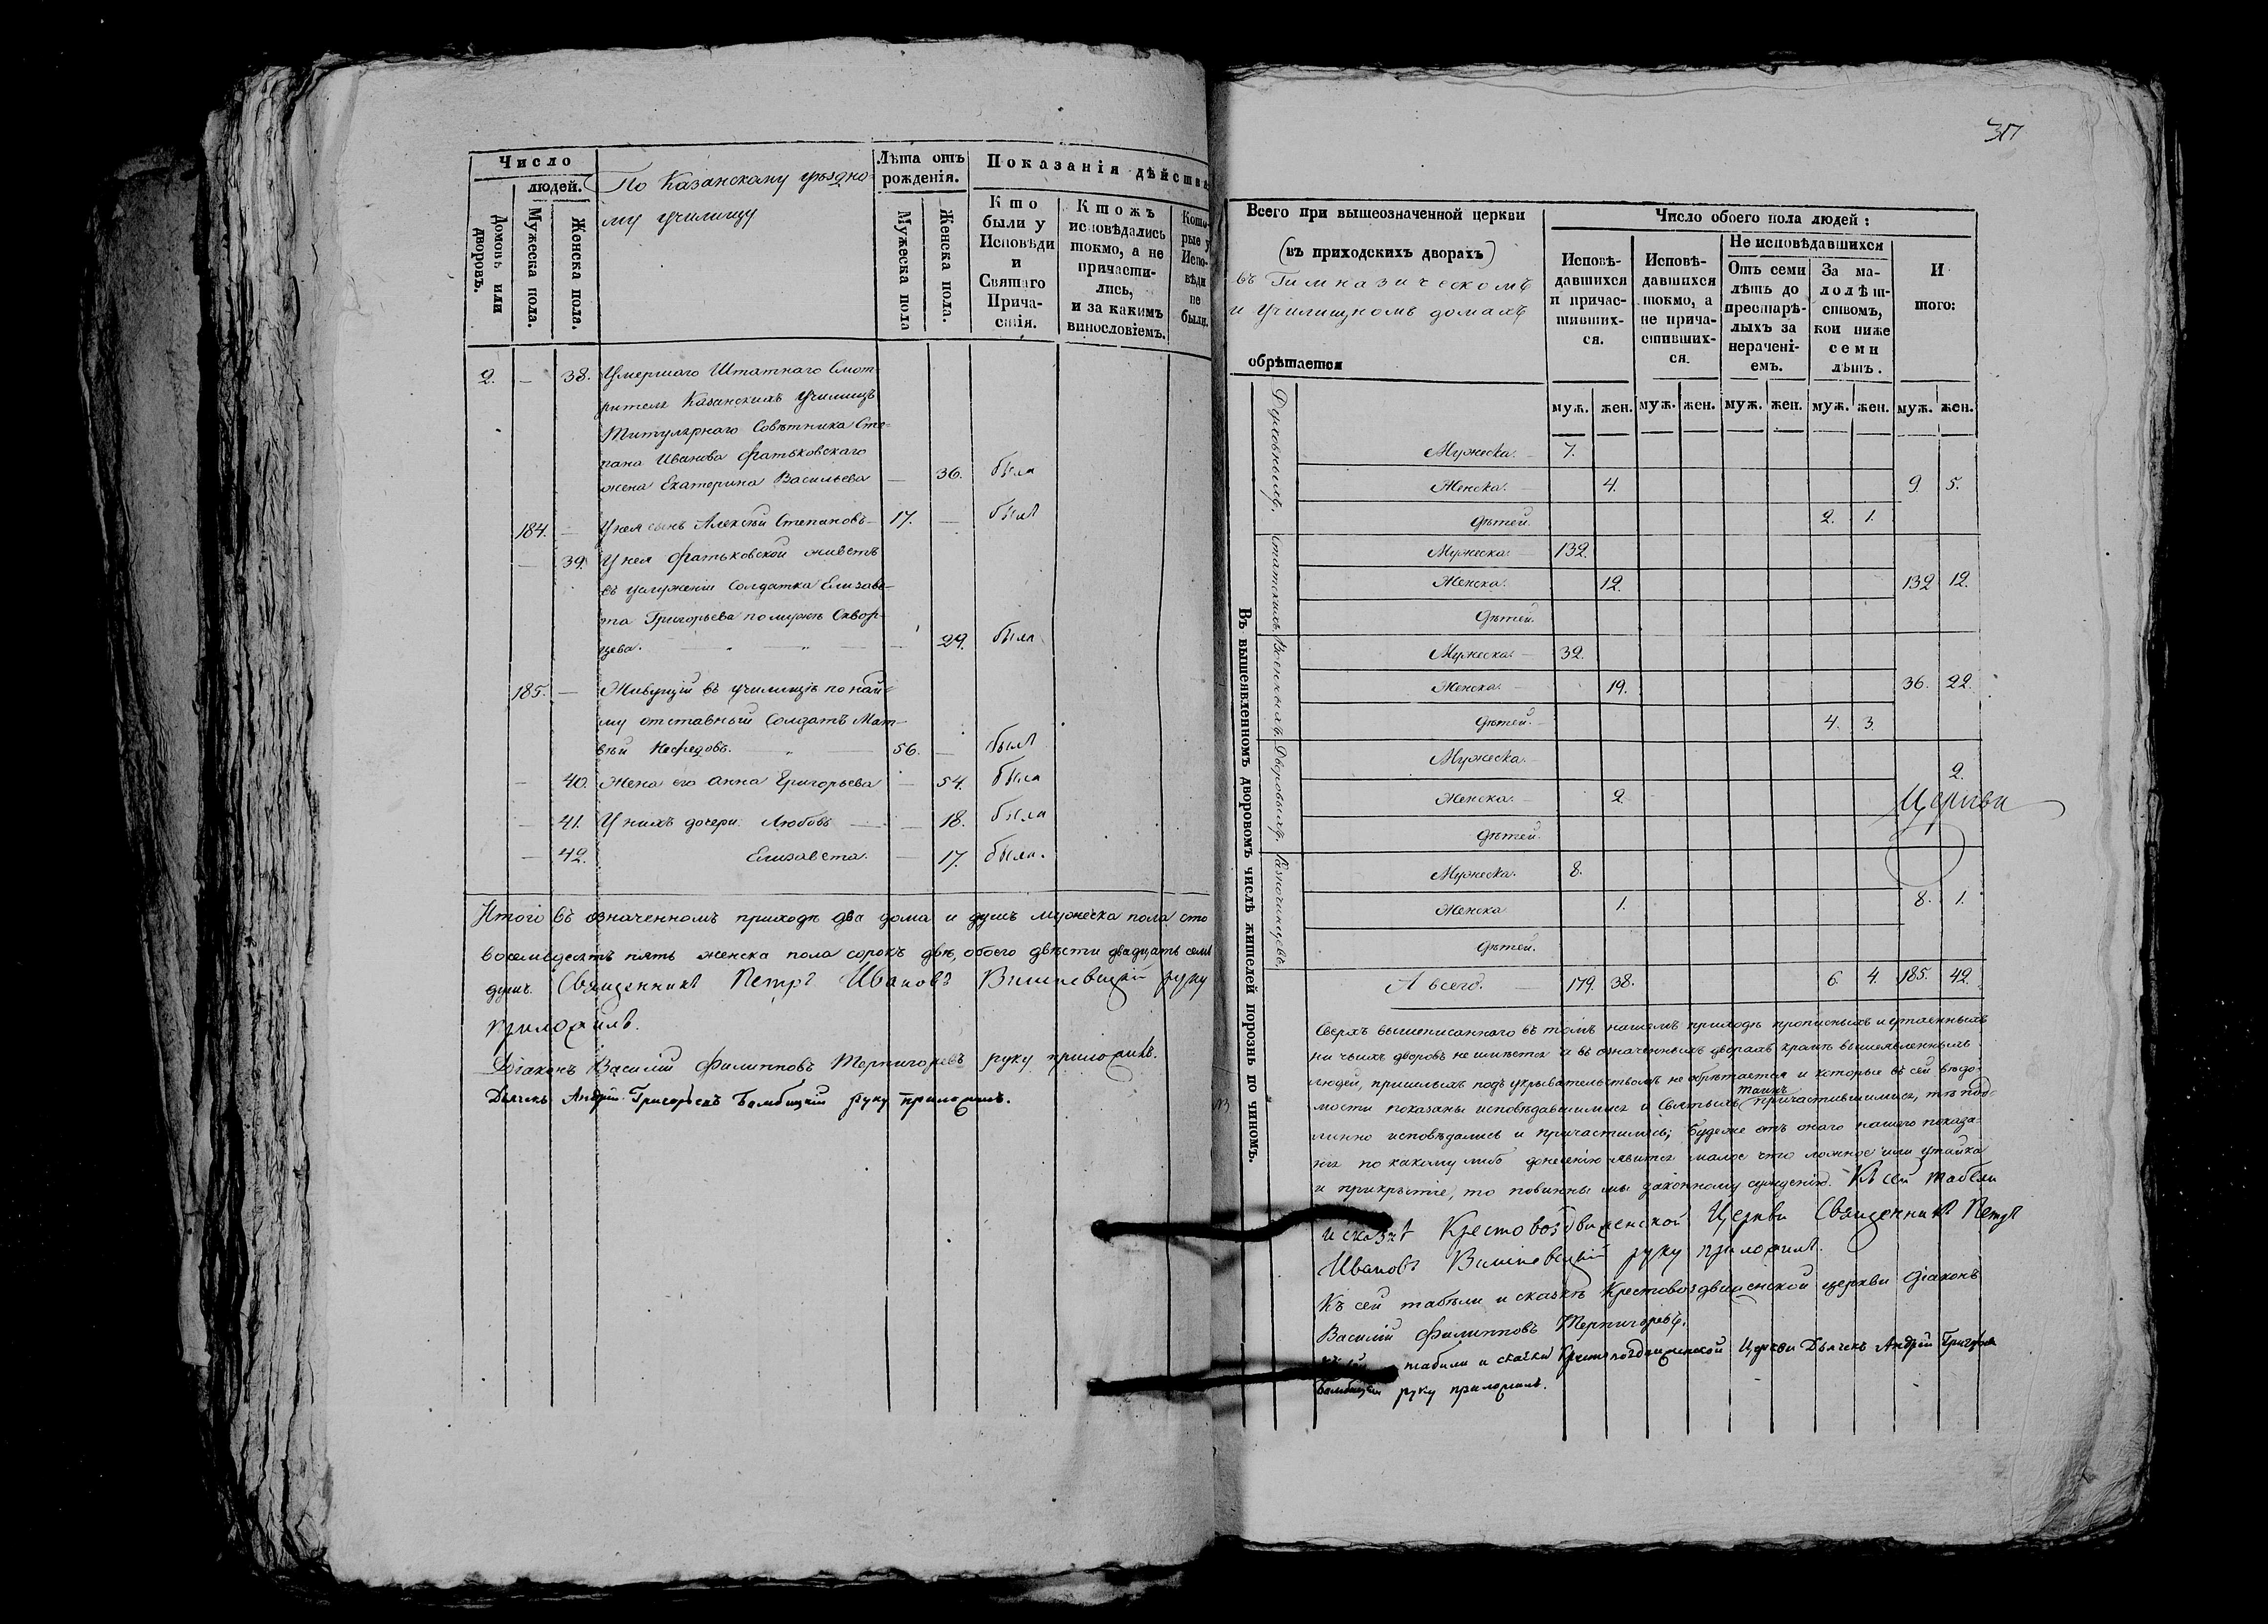 Число
людей.
Домовъ или дворовъ.
Мужеска пола.
Женска пола.
По Казанскому уѣздно-
му училищу
Лѣта отъ рожденія.
Мужеска пола
Женска пола.
Показанія дѣйства
Кто были у Исповѣди и Святаго Прича-стія.
Ктожъ исповѣдались токмо, а не причасти-лись, и за какимъ винословіемъ.
Кото-рые у Испо-вѣди не были.
2. — 38. Умершаго Штатнаго Смот-
рителя Казанскихъ Училищъ
Титулярнаго Совѣтника Сте-
пана Иванова Фатьковскаго
жена Екатерина Васильева — 36. была
184. — У нея сынъ Алексѣй Степановъ — 17. — былъ
— 39. У нея Фатьковской живетъ
въ услуженіи Солдатка Елизаве-
та Григорьева по мужѣ Сквор-
цева. — 29. была
185. — Живущій въ училищѣ по най-
му отставный Солдатъ Мат-
вѣй Нефедовъ. — 56. — былъ
— 40. Жена его Анна Григорьева — 54. была
— 41. У нихъ дочери: Любовь — 18. была
— 42. Елизавета. — 17. была.
Итого въ означенномъ приходѣ два дома и душъ мужеска пола сто
восемьдесятъ пять женска пола сорокъ двѣ, обоего двѣсти двадцать семь
душъ. Священникъ Петръ Ивановъ Вишневскій руку
приложилъ.
Діаконъ Василій Филипповъ Терпигоревъ руку приложилъ.
Дьячекъ Андрей Григорьевъ руку приложилъ.
317
Всего при вышеозначенной церкви
(въ приходскихъ дворахъ)
въ Гимназическомъ
и Училищномъ домахъ
обрѣтается
Число обоего пола людей:
Исповѣ-давшихся и причас-тивших-ся.
Исповѣ-давшихся токмо, а не прича-стивших-ся.
Не исповѣдавшихся
Отъ семи лѣтъ до престарѣ-лыхъ за нерачені-емъ.
За ма-лолѣт-ствомъ, кои ниже семи лѣтъ.
И того:
муж. жен. муж. жен. муж. жен. муж. жен. муж. жен.
Въ вышеявленномъ дворовомъ числѣ жителей порознь по чиномъ.
Духовныхъ.
Мужеска. — 7.
Женска. — 4. 9. 5.
Дѣтей. 2. 1.
Статскихъ.
Мужеска. — 132.
Женска. — 12. 132 12.
Дѣтей.
Военныхъ.
Мужеска. — 32.
Женска. — 19. 36. 22.
Дѣтей. — 4. 3.
Дворовыхъ.
Мужеска. —
Женска. — 2 2.
Церкви
Дѣтей.
Разночинцевъ.
Мужеска. 8.
Женска 1. 8. 1.
Дѣтей.
А всего. — 179. 38. 6. 4. 185. 42.
Сверхъ вышеписаннаго въ томъ нашемъ приходѣ прописныхъ и утаенныхъ
ни чьихъ дворовъ не имѣется и въ означенныхъ дворахъ кромѣ вышеявленныхъ
людей, пришлыхъ подъ укрывательствомъ не обрѣтается и которые въ сей вѣдо-
мости показаны исповѣдавшимися и Святыхъ таинъ причастившимися, тѣ под-
линно исповѣдались и причастились; будеже отъ онаго нашего показа-
нія по какому либо донесенію явится малое что ложное или утайка
и прикрытіе, то повинны мы законному сужденію. Къ сей табели
и сказкѣ Крестовоздвиженской Церкви Священникъ Петръ
Ивановъ Вишневскій руку приложилъ.
Къ сей табѣли и сказкѣ Крестовоздвиженской церкви Діаконъ
Василій Филипповъ Терпигоревъ.
табели и сказки Крестовоздвиженской Церкви Дьячекъ Андрей Григорьевъ
руку приложилъ.